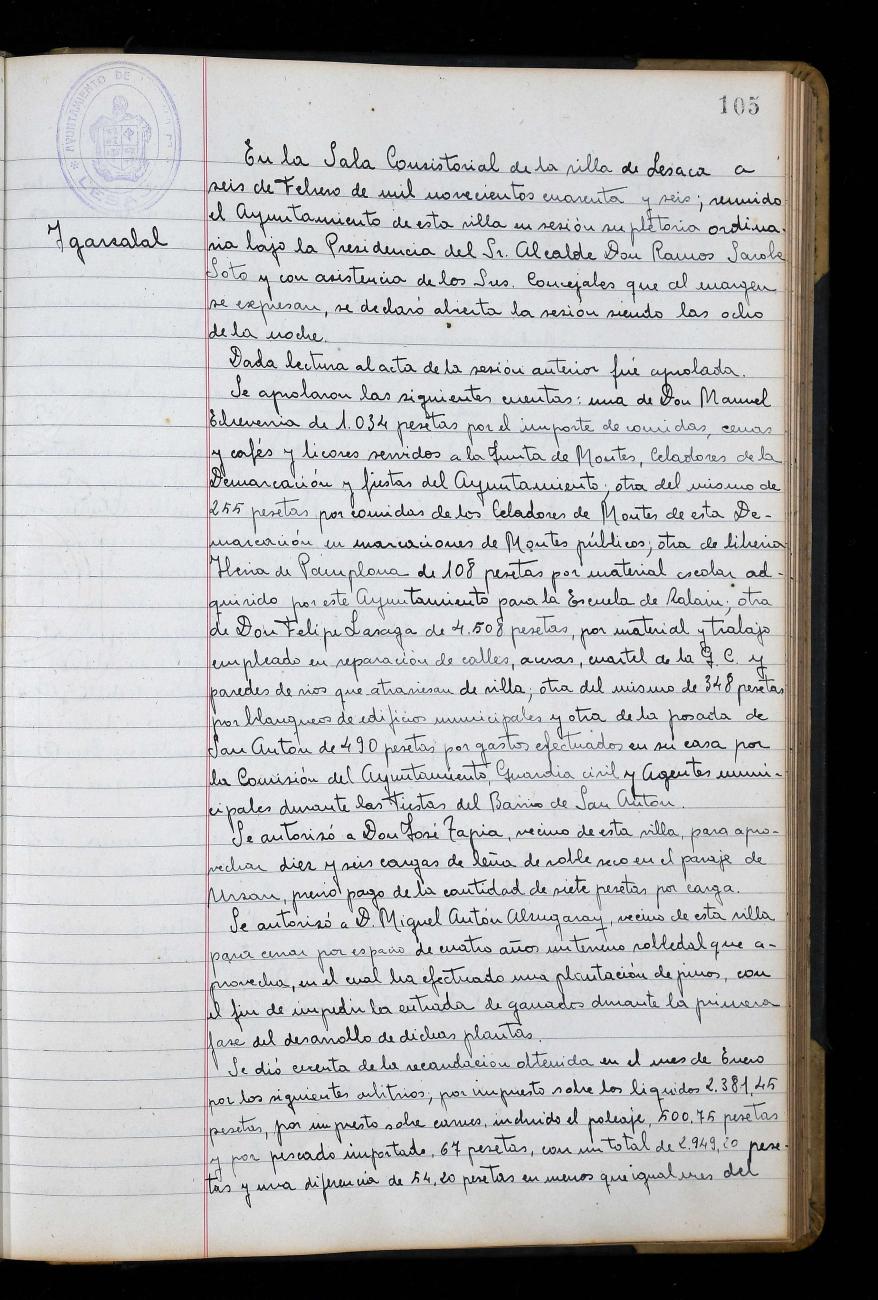 105
AYUNTAMIENTO DE
LESA
Igarzabal
En la Sala Consistorial de la villa de Lesaca a
seis de Febrero de mil novecientos cuarenta y seis; reunido
el Ayuntamiento de esta villa en sesión supletoria ordina-
ria bajo la Presidencia del Sr. Alcalde Don Ramos Sarobe
Soto y con asistencia de los Sres. Concejales que al margen
se expresan, se declaró abierta la sesión siendo las ocho
de la noche.
Dada lectura al acta de la sesión anterior fué aprobada.
Se aprobaron las siguientes cuentas: una de Don Manuel
Echeverria de 1.034 pesetas por el importe de comidas, cenas
y cafés y licores servidos a la Junta de Montes, Celadores de la
Demarcación y fiestas del Ayuntamiento; otra del mismo de
255 pesetas por comidas de los Celadores de Montes de esta De-
marcación en marcaciones de Montes públicos; otra de libreria
de Pamplona de 108 pesetas por material escolar ad-
quirido por este Ayuntamiento para la Escuela de Zalain; otra
de Don Felipe Lasaga de 4.508 pesetas, por material y trabajo
empleado en reparación de calles, aceras, cuartel de la G. C. y
paredes de rios que atraviesan de villa; otra del mismo de 348 pesetas
por blanqueos de edificios municipales y otra de la posada de
San Anton de 490 pesetas por gastos efectuados en su casa por
la Comisión del Ayuntamiento, Guardia civil y Agentes muni-
cipales durante las Fiestas del Barrio de San Anton.
Se autorizó a Don José Tapia, vecino de esta villa, para apro-
vechar diez y seis cargas de leña de roble seco en el paraje de
Urzan, previo pago de la cantidad de siete pesetas por carga.
Se autorizó a D. Miguel Antón Alzugaray, vecino de esta villa
para cerrar por espacio de cuatro años un terreno robledal que a-
provecha, en el cual ha efectuado una plantación de pinos, con
el fin de impedir la entrada de ganados durante la primera
fase del desarrollo de dichas plantas.
Se dió cuenta de la recaudación obtenida en el mes de Enero
por los siguientes arbitrios; por impuesto sobre los liquidos 2.381,45
pesetas, por impuesto sobre carnes, incluido el poleaje, 500,75 pesetas
y por pescado importado, 67 pesetas, con un total de 2.949,20 pese-
tas y una diferencia de 54,20 pesetas en menos que igual mes del